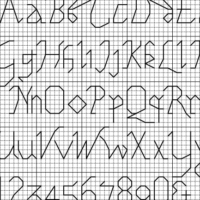 AaBbCcD
GgHhIiJjKkLl
NnOoPpQqRr
UuVvWwXxY
1234567890&